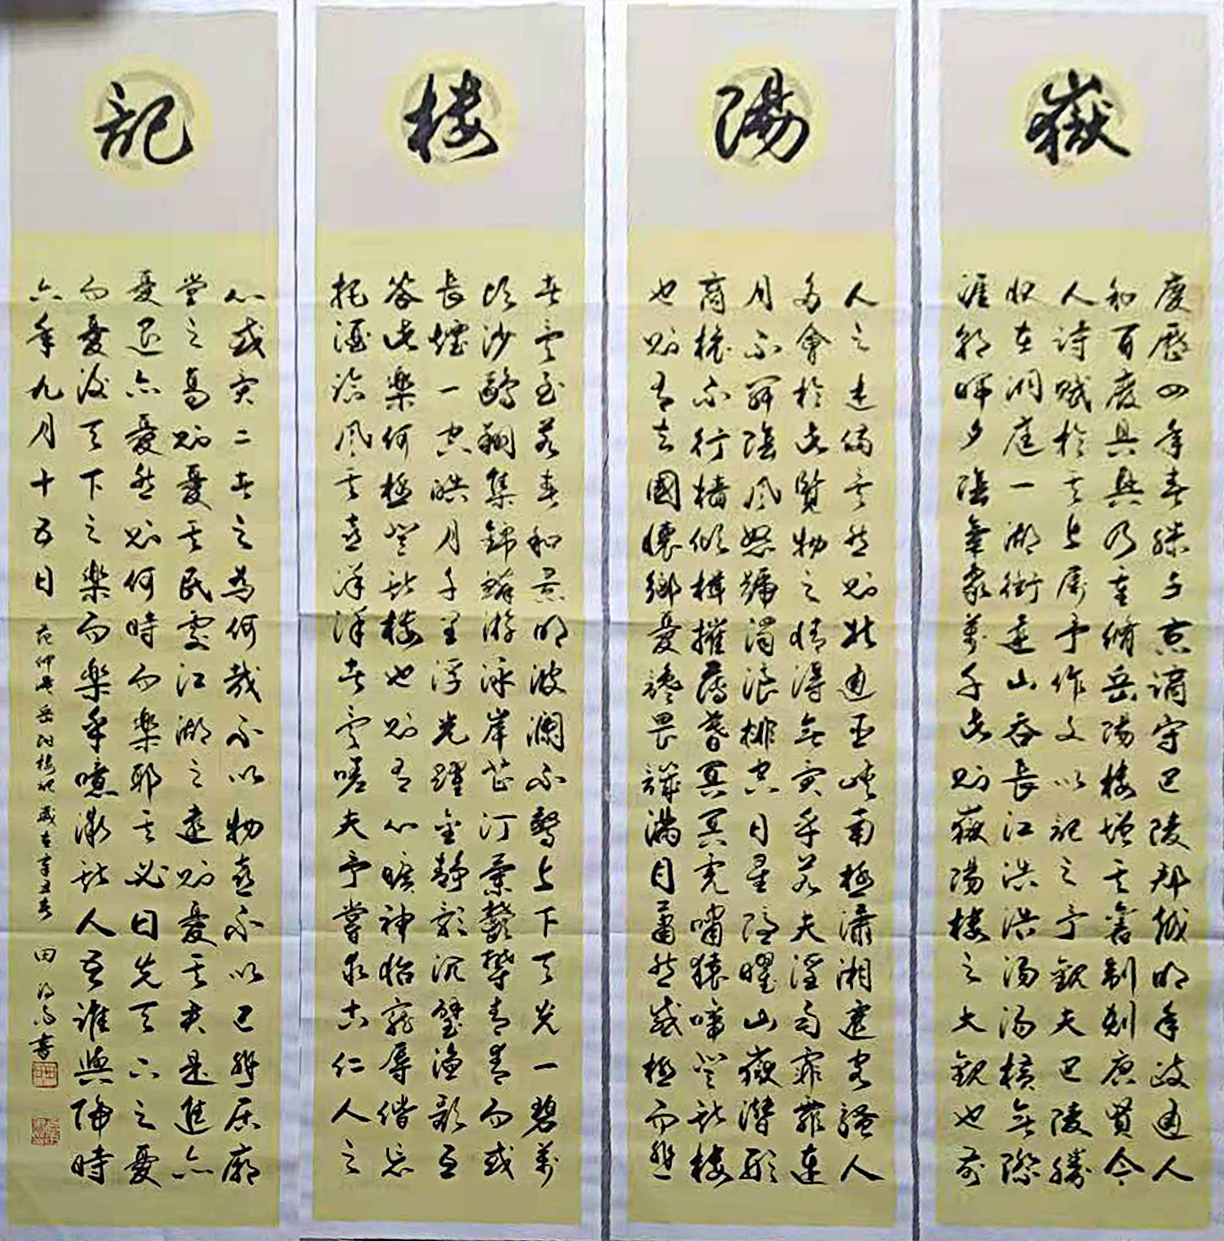 嶽
慶歷四年春滕子京謫守巴陵郡越明年政通人
和百廢具興乃重脩岳陽樓增其舊制刻唐賢今
人詩賦於其上属予作文以記之予觀夫巴陵勝
状在洞庭一湖銜遠山吞長江浩浩湯湯橫無際
涯朝暉夕陰氣象萬千此則嶽陽樓之大觀也前
陽
人之述備矣然則北通巫峽南極瀟湘遷客騷人
多會於此覽物之情得無異乎若夫淫雨霏霏連
月不開陰風怒號濁浪排空日星隱曜山嶽潛形
商旅不行檣傾楫摧薄暮冥冥虎嘯猿啼登斯樓
也則有去國懷鄉憂讒畏譏滿目蕭然感極而悲
樓
者矣至若春和景明波瀾不驚上下天光一碧萬
頃沙鷗翔集錦鱗游泳岸芷汀蘭鬱鬱青青而或
長煙一空皓月千里浮光躍金靜影沉璧漁歌互
答此樂何極登斯樓也則有心曠神怡寵辱偕忘
把酒臨風其喜洋洋者矣嗟夫予嘗求古仁人之
記
心或異二者之為何哉不以物喜不以己悲居廟
堂之高則憂其民處江湖之遠則憂其君是進亦
憂退亦憂然則何時而樂耶其必曰先天下之憂
而憂後天下之樂而樂乎噫微斯人吾誰與歸時
六年九月十五日 范仲淹岳阳樓記歲在辛丑春 田 書